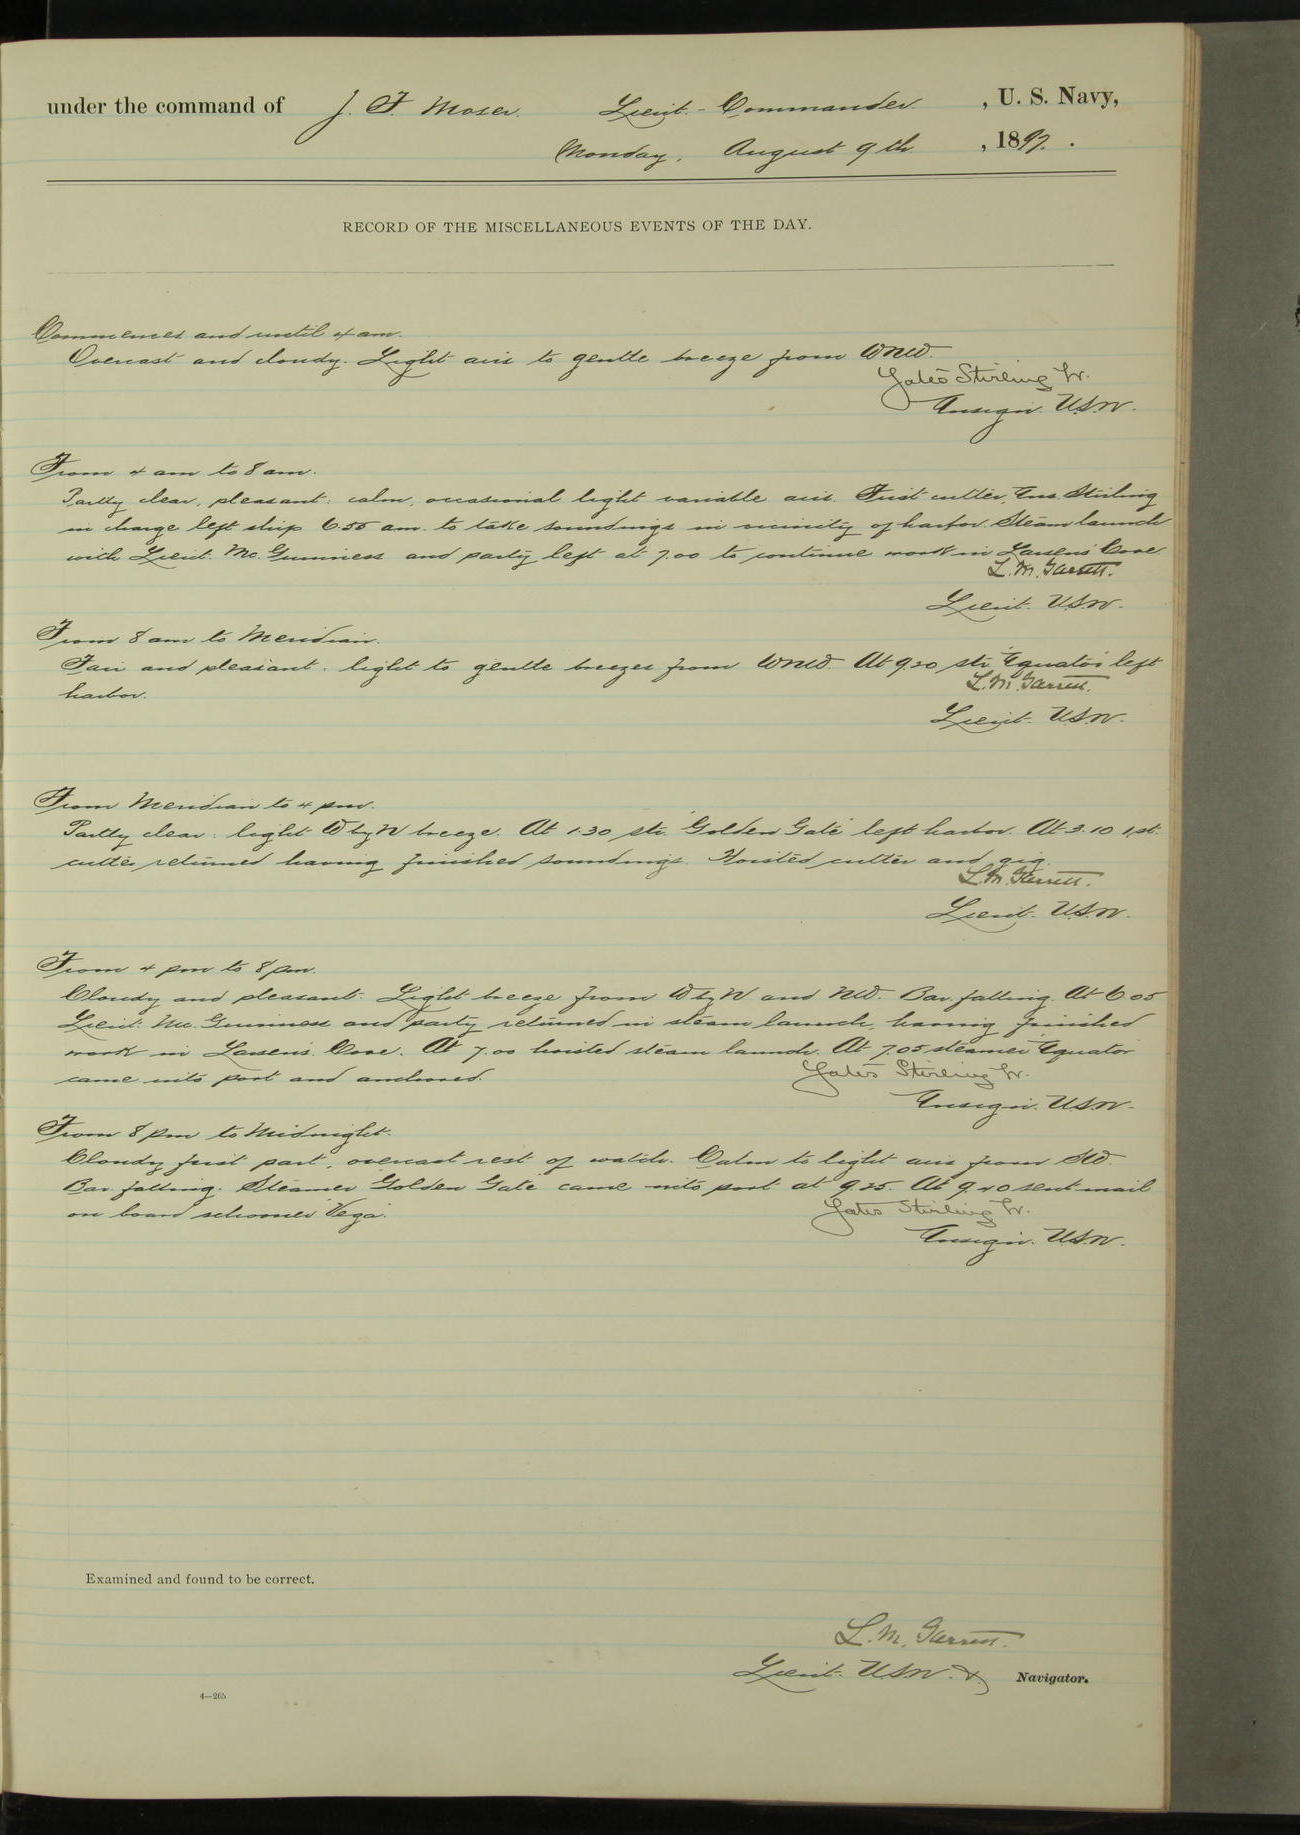 under the command of J. F. Moser. Lieut.-Commander. , U. S. Navy,
Monday, August 9th , 1897.
RECORD OF THE MISCELLANEOUS EVENTS OF THE DAY.
Commences and until 4 am.
Overcast and cloudy. Light airs to gentle breeze from WNW.
Yates Stirling Jr.
Ensign. U.S.N.
From 4 am to 8 am.
Partly clear, pleasant; calm, occasional light variable airs. First cutter, Ens. Stirling
in charge left ship 6.55 am. to take soundings in vicinity of harbor. Steam launch
with Lieut. McGuinness and party left at 7.00 to continue work in Larsens Cove
L. M. Garrett.
Lieut. U.S.N.
From 8 am to Meridian.
Fair and pleasant; light to gentle breezes from WNW. At 9.20 str. "Equator" left
harbor.
L. M. Garrett.
Lieut. U.S.N.
From Meridian to 4 pm.
Partly clear; light W by N breeze. At 1.30 str. "Golden Gate" left harbor. At 3.10 1st
cutter returned having finished soundings. Hoisted cutter and gig.
L. M. Garrett.
Lieut. U.S.N.
From 4 pm to 8 pm.
Cloudy and pleasant. Light breeze from W by N and NW. Bar. falling. At 6.05
Lieut. McGuinness and party returned in steam launch, having finished
work in Larsens Cove. At 7.00 hoisted steam launch. At 7.05 steamer Equator
came into port and anchored.
Yates Stirling Jr.
Ensign. U.S.N.
From 8 pm to Midnight.
Cloudy first part, overcast rest of watch. Calm to light airs from SW.
Bar. falling. Steamer "Golden Gate" came into port at 9.25. At 9.40 sent mail
on board schooner "Vega".
Yates Stirling Jr.
Ensign. U.S.N.
Examined and found to be correct.
L. M. Garrett.
Lieut. U.S.N. & Navigator.
4—265